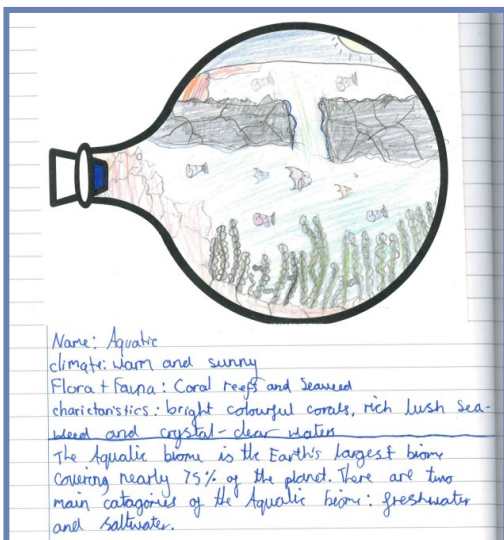 Name: Aquatic
climate: warm and sunny
Flora + Fauna: Coral reefs and Seaweed
charictaristics: bright colourful corals, rich lush Sea-
weed and crystal-clear waters
The Aquatic biome is the Earth's largest biome
covering nearly 75% of the planet. There are two
main catagories of the Aquatic biome: freshwater
and saltwater.